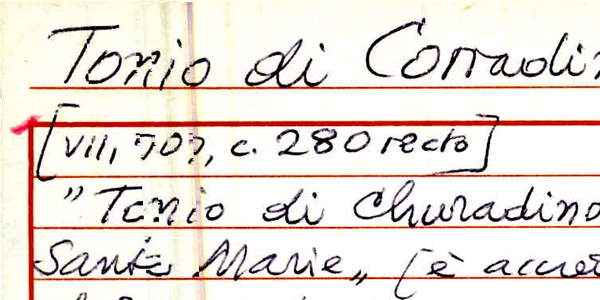 Tonio di Corradin
[VII, 70?, c. 280 recto]
"Tonio di Churadino
Sante Marie„ (è accre